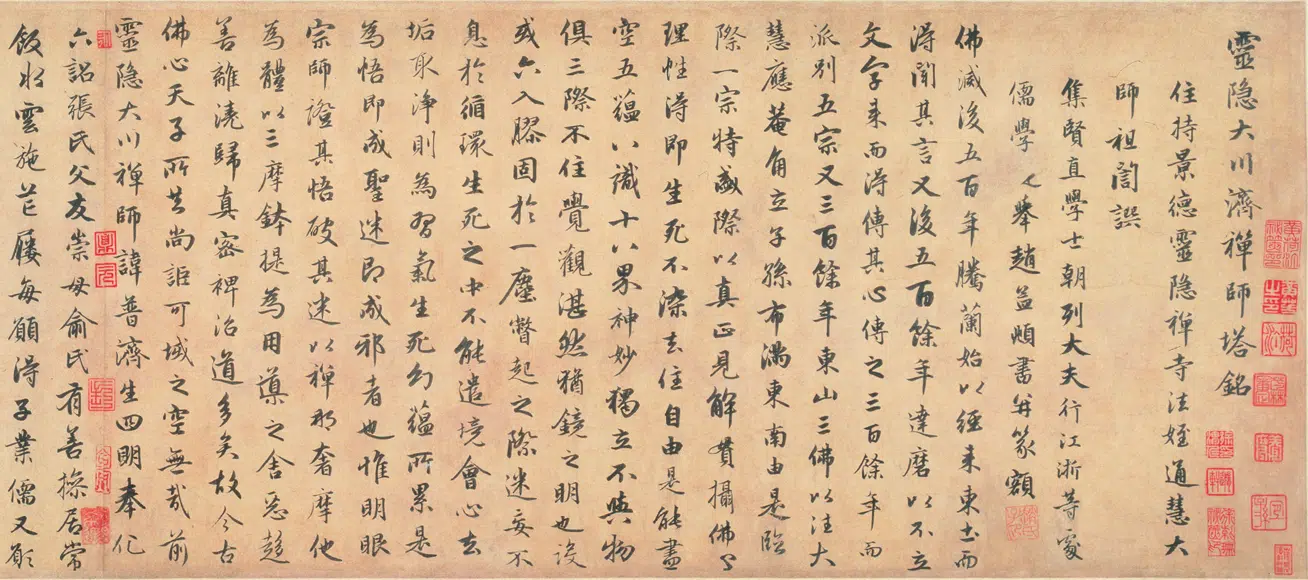 靈隐大川濟禪師塔銘
住持景德靈隐禪寺法姪通慧大
師祖誾譔
集賢直學士朝列大夫行江浙等處
儒學提舉趙孟頫書并篆額
佛滅後五百年騰蘭始以經来東土而
得聞其言又後五百餘年達磨以不立
文字来而得傳其心傳之三百餘年而
派別五宗又三百餘年東山三佛以法大
慧應菴角立子孫布滿東南由是臨
際一宗特盛際以真正見解貫攝佛了
理性得即生死不染去住自由是能盡
空五蕴八識十八界神妙獨立不與物
俱三際不住覺觀湛然猶鏡之明也設
或六入膠固於一塵瞥起之際迷妄不
息於循環生死之中不能遣境會心去
垢取淨則為習氣生死幻蕴所累是
為悟即成聖迷即成邪者也惟明眼
宗師證其悟破其迷以禪那奢摩他
為體以三摩鉢提為用導之舍惡趍
善離澆歸真密裨治道多矣故今古
佛心天子所共尚詎可堿之空無哉前
靈隐大川禪師諱普濟生四明奉化
六詔張氏父友崇母俞氏有善操居常
飯水雲施芒屨每願得子業儒又願